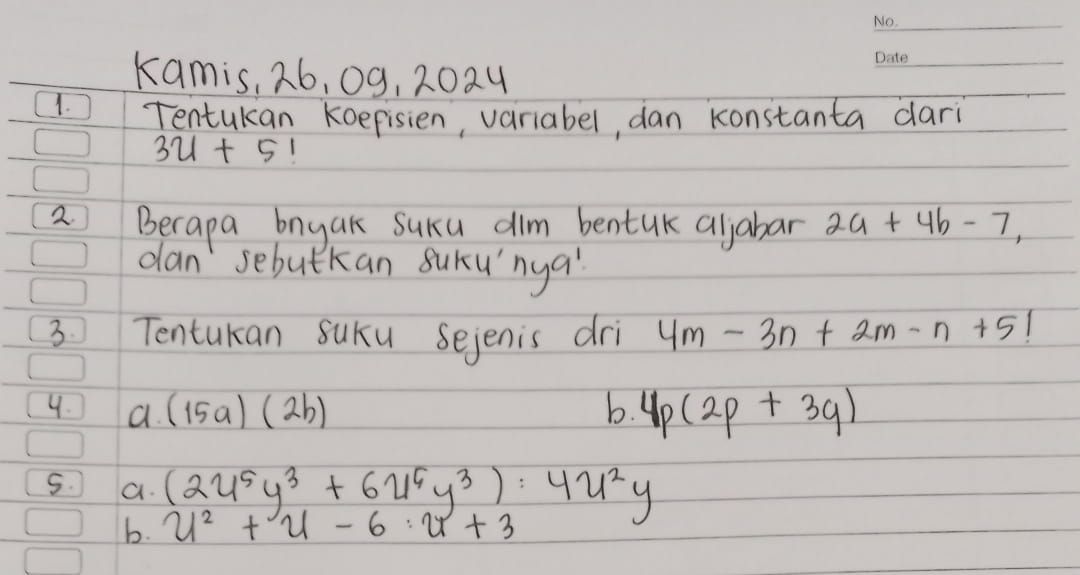 No.
Date
Kamis, 26, 09, 2024
1. Tentukan koepisien, variabel, dan konstanta dari
3x + 5!
2. Berapa bnyak suku dlm bentuk aljabar 2a + 4b - 7,
dan sebutkan suku'nya!
3. Tentukan suku sejenis dri 4m - 3n + 2m - n + 5!
4. a. (15a) (2b) b. 4p (2p + 3q)
5. a. (2x⁵y³ + 6x⁵y³) : 4x²y
b. x² + x - 6 : x + 3